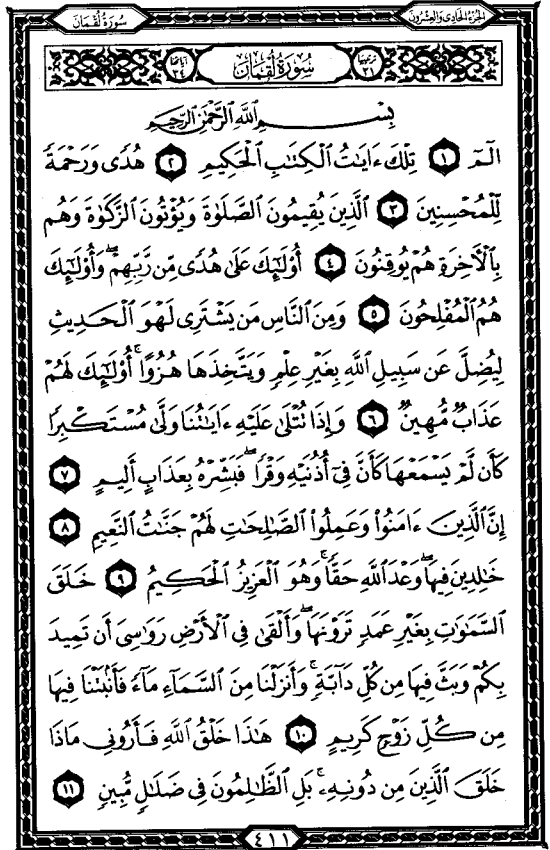 سُورَةُ لُقْمَانَ
الجُزْءُ الحَادِى وَالعِشْرُونَ
ترتيبها ٣١
سُورَةُ لُقْمَانَ
آياتها ٣٤
بِسْمِ اللَّهِ الرَّحْمَٰنِ الرَّحِيمِ
الٓمٓ ١ تِلْكَ ءَايَٰتُ الْكِتَٰبِ الْحَكِيمِ ٢ هُدًى وَرَحْمَةً
لِّلْمُحْسِنِينَ ٣ الَّذِينَ يُقِيمُونَ الصَّلَوٰةَ وَيُؤْتُونَ الزَّكَوٰةَ وَهُم
بِالْأَخِرَةِ هُمْ يُوقِنُونَ ٤ أُوْلَٰٓئِكَ عَلَىٰ هُدًى مِّن رَّبِّهِمْ ۖ وَأُوْلَٰٓئِكَ
هُمُ الْمُفْلِحُونَ ٥ وَمِنَ النَّاسِ مَن يَشْتَرِى لَهْوَ الْحَدِيثِ
لِيُضِلَّ عَن سَبِيلِ اللَّهِ بِغَيْرِ عِلْمٍ وَيَتَّخِذَهَا هُزُوًا ۚ أُوْلَٰٓئِكَ لَهُمْ
عَذَابٌ مُّهِينٌ ٦ وَإِذَا تُتْلَىٰ عَلَيْهِ ءَايَٰتُنَا وَلَّىٰ مُسْتَكْبِرًا
كَأَن لَّمْ يَسْمَعْهَا كَأَنَّ فِىٓ أُذُنَيْهِ وَقْرًا ۖ فَبَشِّرْهُ بِعَذَابٍ أَلِيمٍ ٧
إِنَّ الَّذِينَ ءَامَنُوا۟ وَعَمِلُوا۟ الصَّٰلِحَٰتِ لَهُمْ جَنَّٰتُ النَّعِيمِ ٨
خَٰلِدِينَ فِيهَا ۖ وَعْدَ اللَّهِ حَقًّا ۚ وَهُوَ الْعَزِيزُ الْحَكِيمُ ٩ خَلَقَ
السَّمَٰوَٰتِ بِغَيْرِ عَمَدٍ تَرَوْنَهَا ۖ وَأَلْقَىٰ فِى الْأَرْضِ رَوَٰسِىَ أَن تَمِيدَ
بِكُمْ وَبَثَّ فِيهَا مِن كُلِّ دَآبَّةٍ ۚ وَأَنزَلْنَا مِنَ السَّمَآءِ مَآءً فَأَنۢبَتْنَا فِيهَا
مِن كُلِّ زَوْجٍ كَرِيمٍ ١٠ هَٰذَا خَلْقُ اللَّهِ فَأَرُونِى مَاذَا
خَلَقَ الَّذِينَ مِن دُونِهِۦ ۚ بَلِ الظَّٰلِمُونَ فِى ضَلَٰلٍ مُّبِينٍ ١١
٤١١